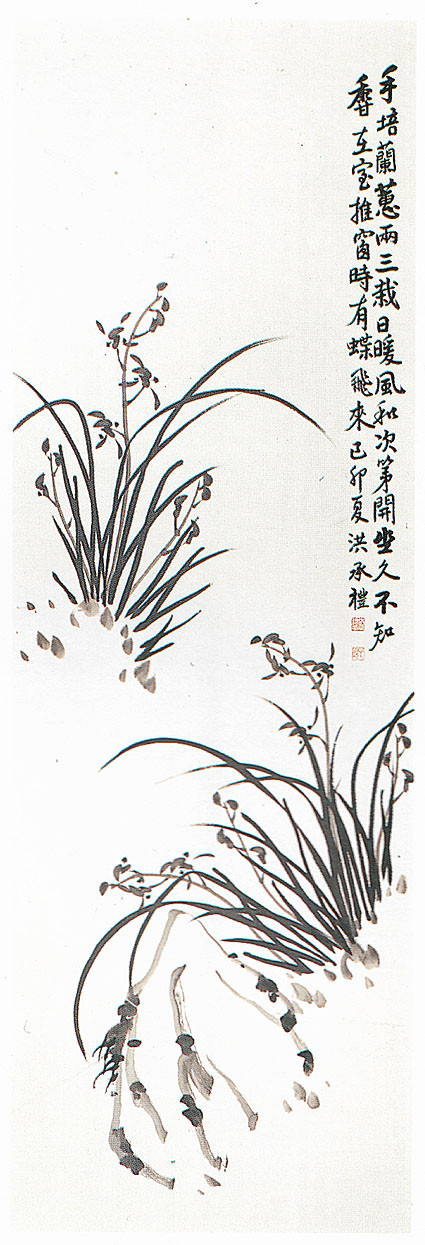 手培蘭蕙兩三栽日暖風和次第開坐久不知
香在室推窗時有蝶飛來 己卯夏 洪承禮